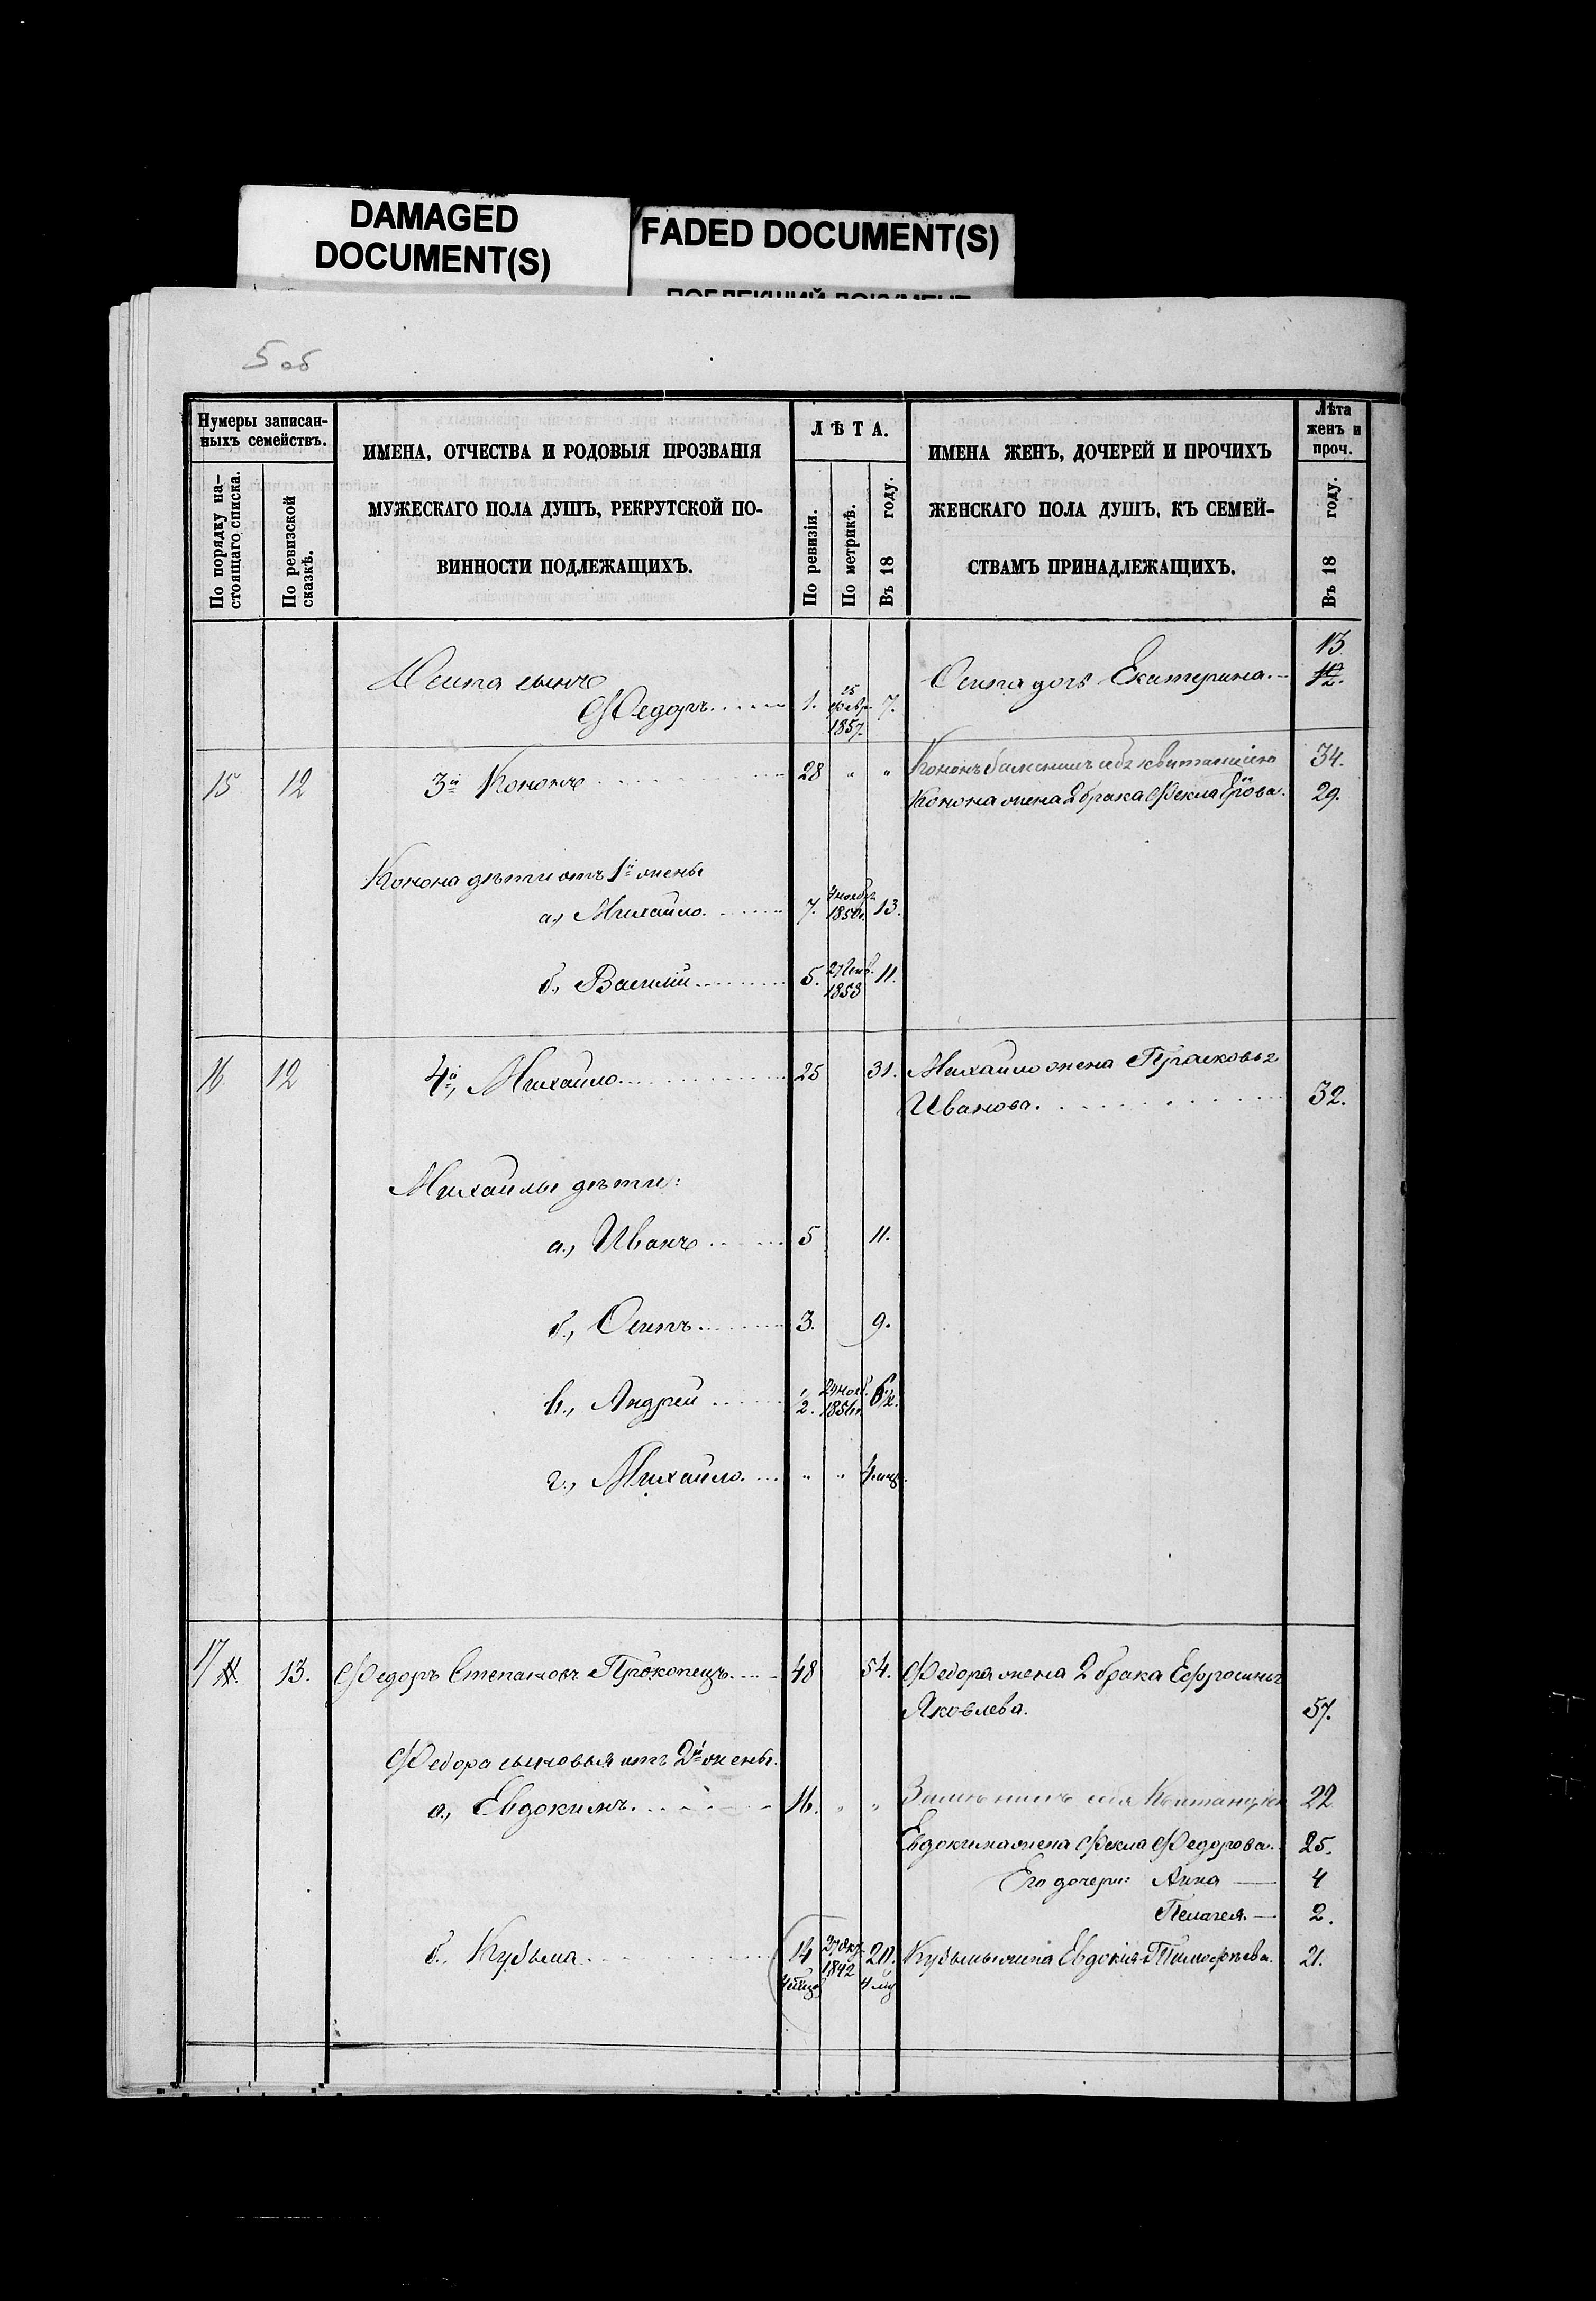 DAMAGED
DOCUMENT(S)
FADED DOCUMENT(S)
5 об
Нумеры записан-
ныхъ семействъ.
По порядку на-
стоящаго списка.
По ревизской
сказкѣ.
ИМЕНА, ОТЧЕСТВА И РОДОВЫЯ ПРОЗВАНІЯ
МУЖЕСКАГО ПОЛА ДУШЪ, РЕКРУТСКОЙ ПО-
ВИННОСТИ ПОДЛЕЖАЩИХЪ.
ЛѢТА.
По ревизіи.
По метрикѣ.
Въ 18 году.
ИМЕНА ЖЕНЪ, ДОЧЕРЕЙ И ПРОЧИХЪ
ЖЕНСКАГО ПОЛА ДУШЪ, КЪ СЕМЕЙ-
СТВАМЪ ПРИНАДЛЕЖАЩИХЪ.
Лѣта
женъ и
проч.
Въ 18 году.
Осипа сынъ
Федоръ 1. 25 февр. 1857. 7.
Осипа дочь Екатерина. 13
12.
15 12 3й Кононъ 28 " "
Кононъ себя квитанціею 34.
Конона жена 2 брака Фекла 29.
Конона дѣти отъ 1й жены
а., Михайло 7. 4 ноябр. 1850. 13.
б., Василій 5. 1853 11.
16 12 4й, Михайло 25 31.
Михайло жена Прасковья
Иванова. 32.
Михайлы дѣти:
а., Иванъ 5 11.
б., Осипъ 3. 9.
в., Андрей 1/2. 24 нояб. 1856 6 1/2.
г., Михайло " " 4 мѣс.
17 11. 13. Федоръ Степановъ Прокопецъ 48 54.
Федора жена 2 брака Ефросинья
Яковлева. 57.
Федора сыновья отъ 2й жены.
а., Евдокимъ 16. " "
себя квитанціею 22
Евдокима жена Фекла Федорова. 25.
Его дочери: Анна 4
Пелагея. 2.
б., Кузьма 14 4 мѣс. 27 окт. 1842 20. 4 мѣс
Кузьмы жена Евдокія Тимофѣева. 21.